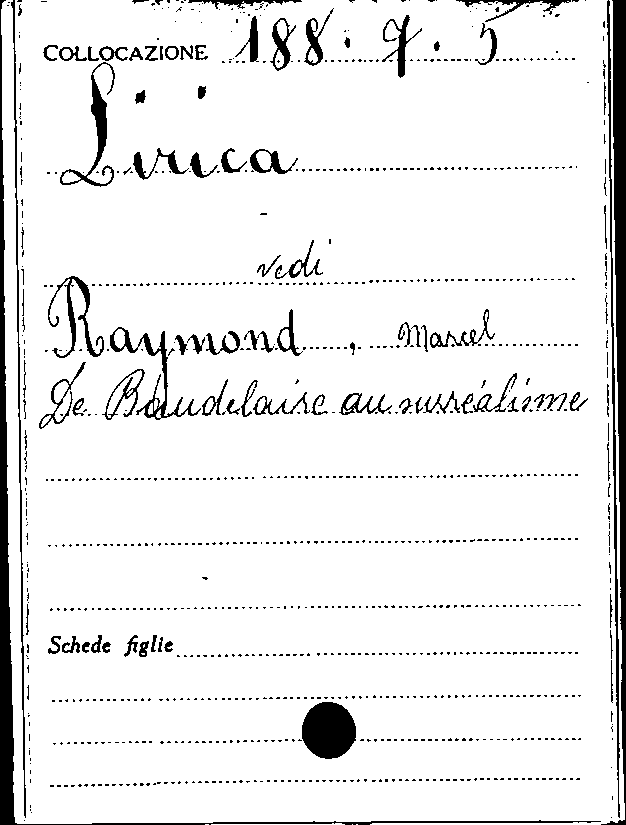 COLLOCAZIONE 188. 7. 5
Lirica
vedi
Raymond, Marcel
De Baudelaire au surréalisme
Schede figlie